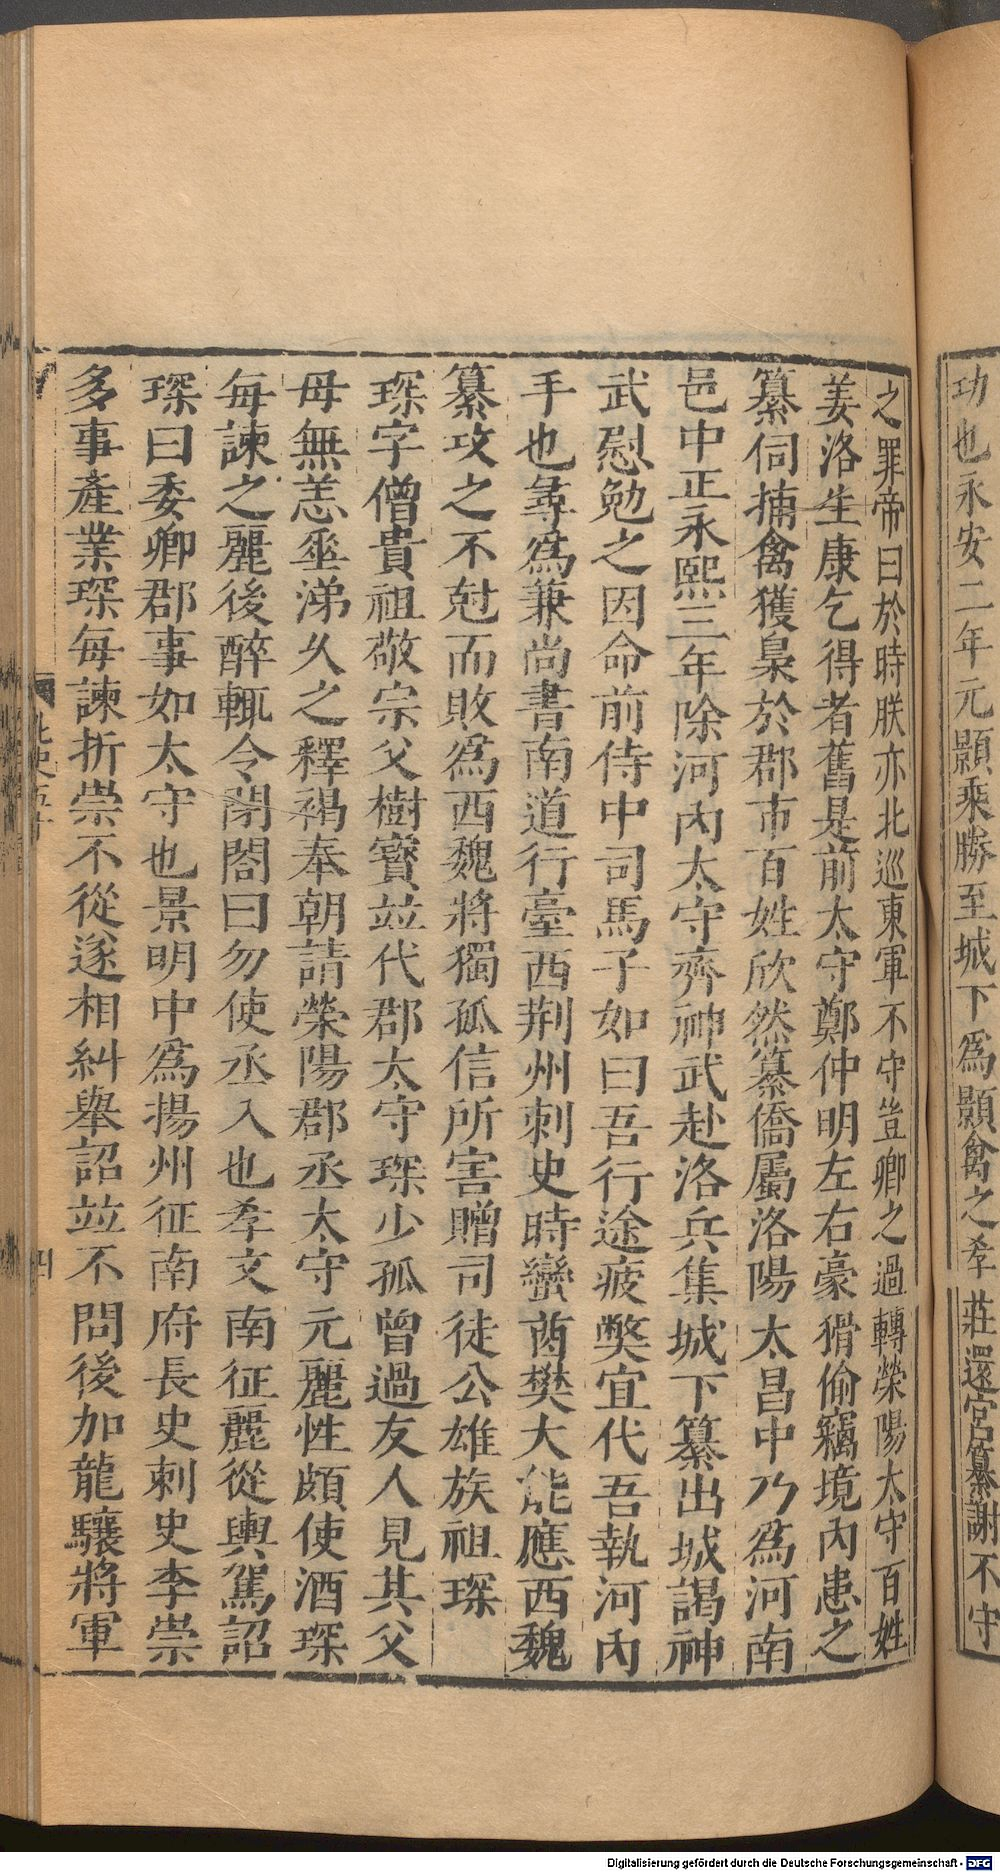 功也永安二年元顥乘勝至城下爲顥禽之孝莊還宮纂謝不守
之罪帝曰於時朕亦北巡東軍不守豈卿之過轉滎陽太守百姓
姜洛生康乞得者舊是前太守鄭仲明左右豪猾偷竊境內患之
纂伺捕禽獲梟於郡市百姓欣然纂僑屬洛陽太昌中乃爲河南
邑中正永熙三年除河內太守齊神武赴洛兵集城下纂出城謁神
武慰勉之因命前侍中司馬子如曰吾行途疲獘宜代吾執河內
手也尋爲兼尚書南道行臺西荆州刺史時蠻酋樊大能應西魏
纂攻之不尅而敗爲西魏將獨孤信所害贈司徒公雄族祖琛
琛字僧貴祖敬宗父樹寳竝代郡太守琛少孤曾過友人見其父
母無恙垂涕久之釋褐奉朝請滎陽郡丞太守元麗性頗使酒琛
每諫之麗後醉輒令閉閤曰勿使丞入也孝文南征麗從輿駕詔
琛曰委卿郡事如太守也景明中爲揚州征南府長史刺史李崇
多事產業琛每諫折崇不從遂相糾舉詔竝不問後加龍驤將軍
北史五十
四
Digitalisierung gefördert durch die Deutsche Forschungsgemeinschaft - DFG